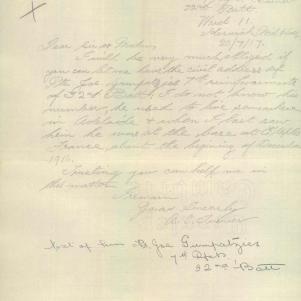 22nd Batt
Ward 11.
20/7/17.
Dear Sir or Madam,
I will be very much obliged if
you can let me have the civil address of
Pte Joe Gumpatzies 7th reinforcements
of 32nd Batt, I do not know his
number, he used to live somewhere
in Adelaide & when I last saw
him he was at the base at
France about the beginning of December
1916.
Trusting you can help me in
this matter
I remain
Yours Sincerely
Pte Joe Gumpatzies
7th Rfts
32nd Batt